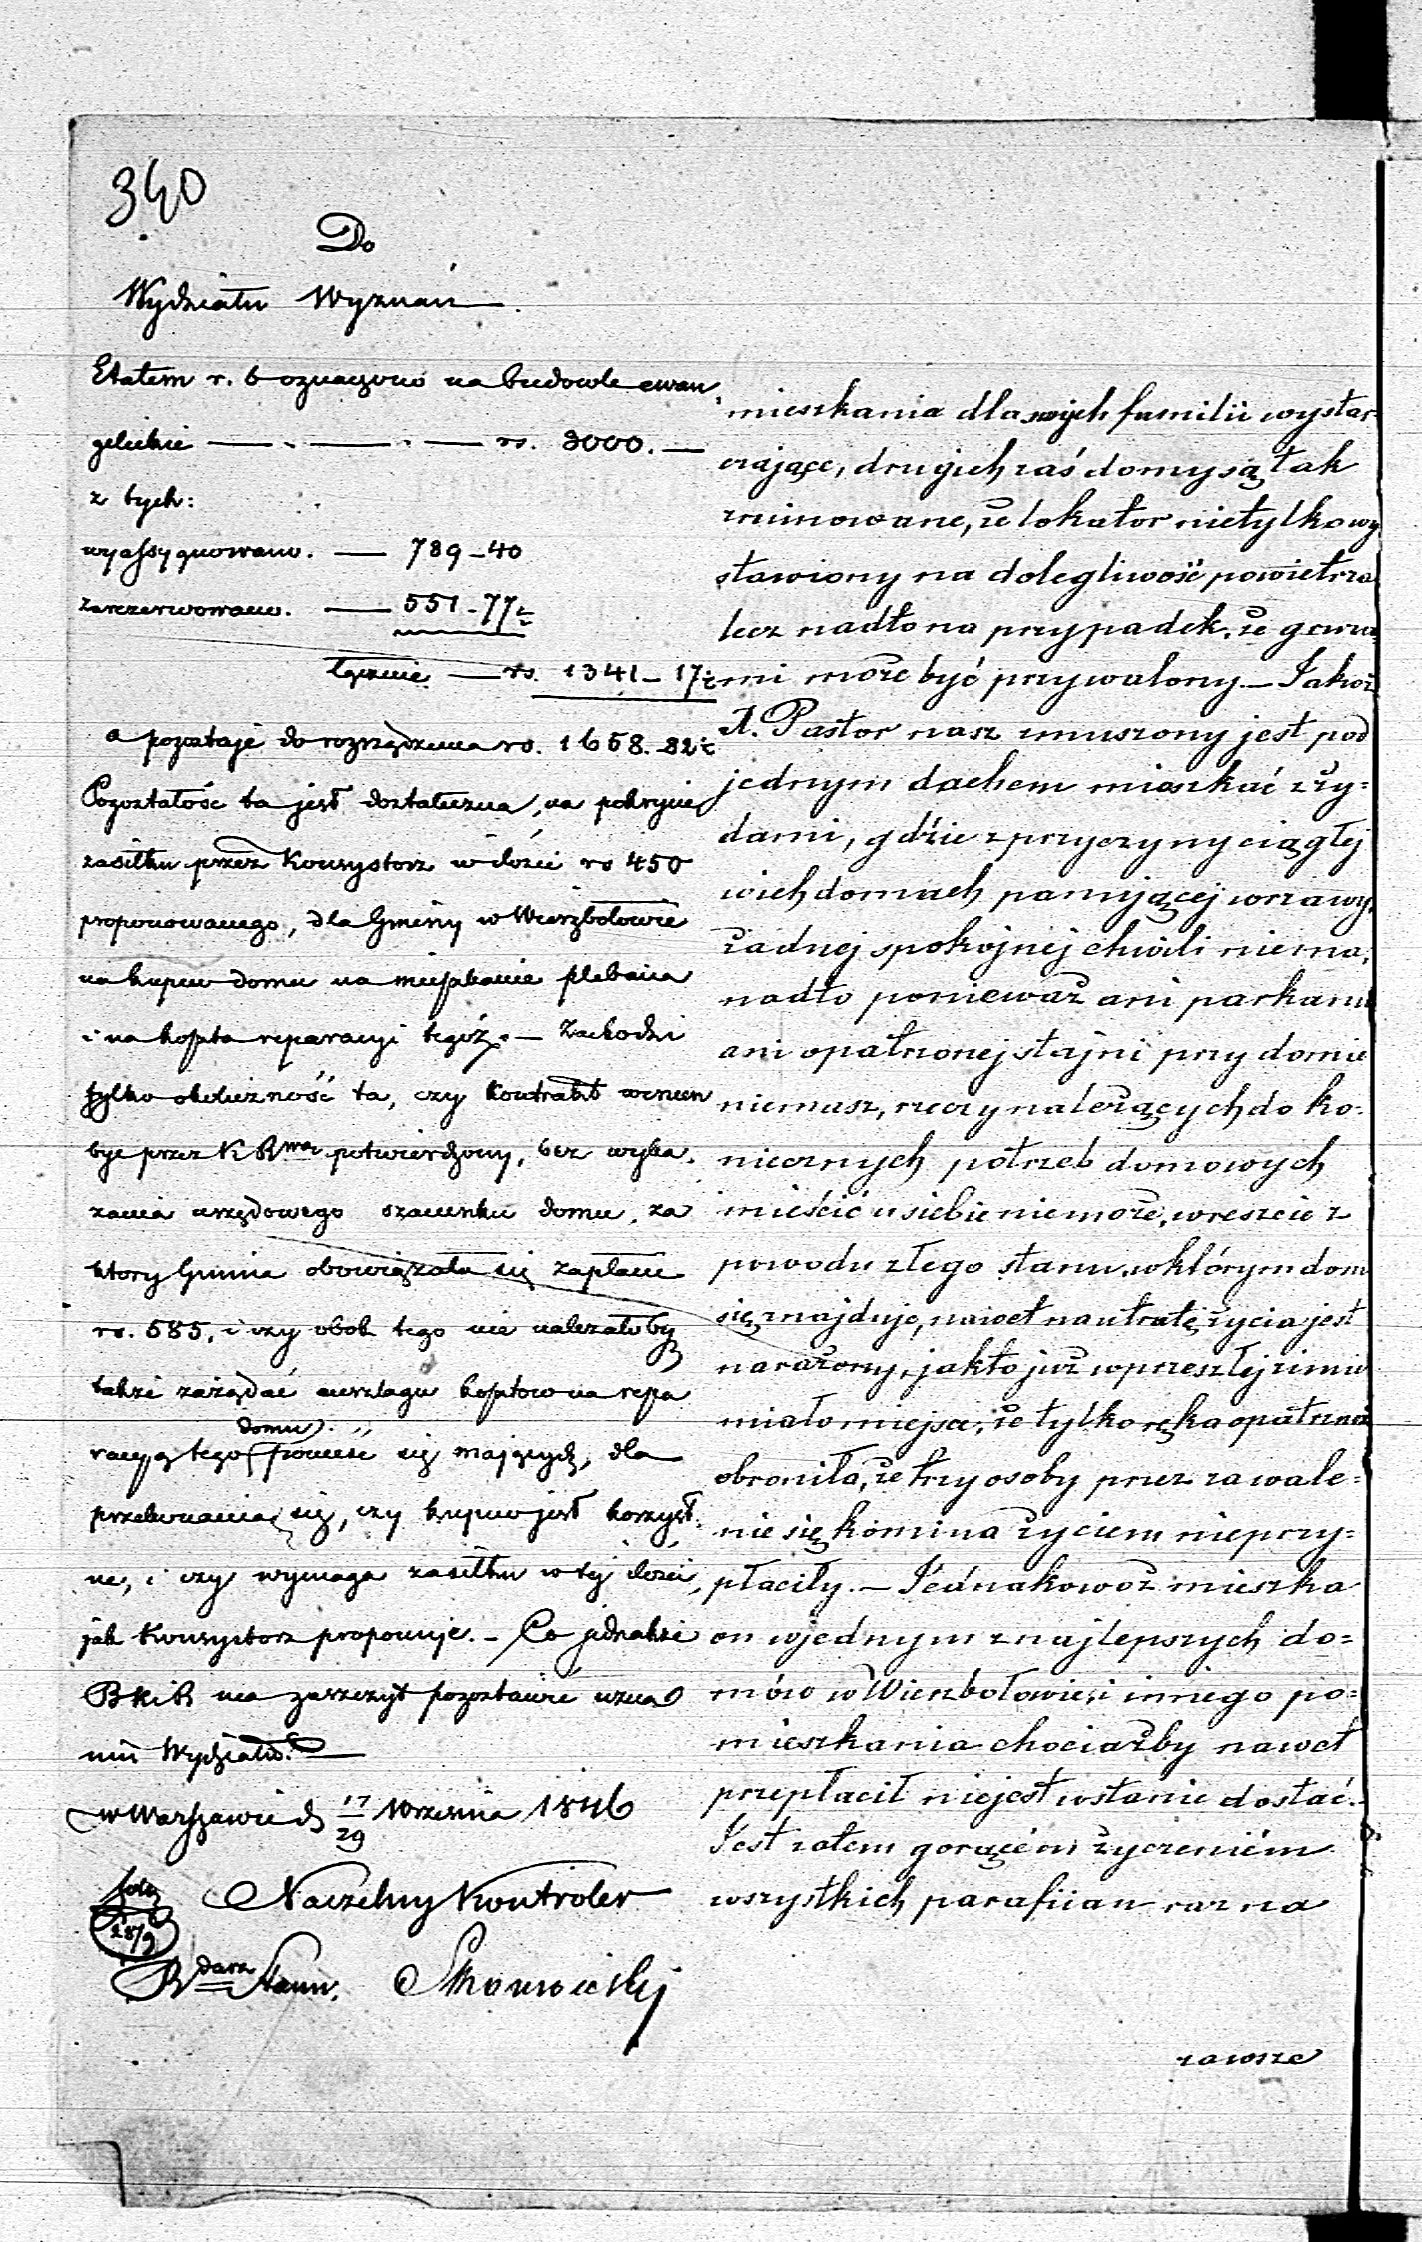 340
Do
Wydziału Wyznań
Etatem r. b oznaczono na budowle ewan,
gelickie — . — . — rs. 3000. —
z tych:
wyassygnowano. — 789-40
zarezerwowano. — 551-77½
łącznie — rs. 1341-17½
a pozostaje do rozrządzenia rs. 1658.-82½
Pozostałość ta jest dostateczna, na pokrycie
zasiłku przez Konsystorz w ilości rs 450
proponowanego, dla Gminy w Wierzbołowie
na kupno domu na mieszkanie plebana
i na koszta reparacyi tegóż. — Zachodzi
tylko okoliczność ta, czy kontrakt
być przez K R potwierdzony, bez wyka,
zania urzędowego szacunku domu, za
ktory Gmina obowiązała się zapłacić
rs. 585, i czy obok tego nie należałoby
także zażądać anszlagu kosztow na repa
domu
racyą tego ponieść się mających, dla
przekonania się, czy kupno jest korzyst.
ne, i czy wymaga zasiłku w tej ilości,
jak Konsystorz proponuje. — Co jednakże
zaszczyt pozostawić uzna
niu Wydziału. —
w Warszawie d 17/29 Września 1846
28/9
Naczelny Kontroler
mieszkania dla swojch familii wystar-
czające, drugich zaś domy są tak
zruinowane, że lokator nietylko wy
stawiony na dolegliwość powietrza
lecz nadto na przypadek, że gruza
mi może być przywalony. — Jakoż
J. Pastor nasz zmuszony jest pod
jednym dachem mieszkać z ży-
dami, gdzie z przyczyny ciągłej
w ich domach panującej wrzawy,
żadnej spokojnej chwili niema,
nadto ponieważ ani parkanu
ani opatrzonej stajni przy domie
niemasz, rzeczy należących do ko-
niecznych potrzeb domowych
mieścić u siebie niemoże, wreszcie z
powodu złego stanu, w którym dom
się znajduje, nawet na utratę życia jest
narażony, jak to już w przeszłej zimie
miało miejsce, że tylko ręka opatrznoś
obroniła, że trzy osoby przez zawale-
nie się komina życiem nieprzy-
płaciły. — Jednakowoż mieszka
on w jednym z najlepszych do-
mów w Wierzbołowie, i innego po-
mieszkania chociażby nawet
przepłacił niejest w stanie dostać. —
Jest zatem gorącém życzeniém
wszystkich parafiian raz na
zawsze